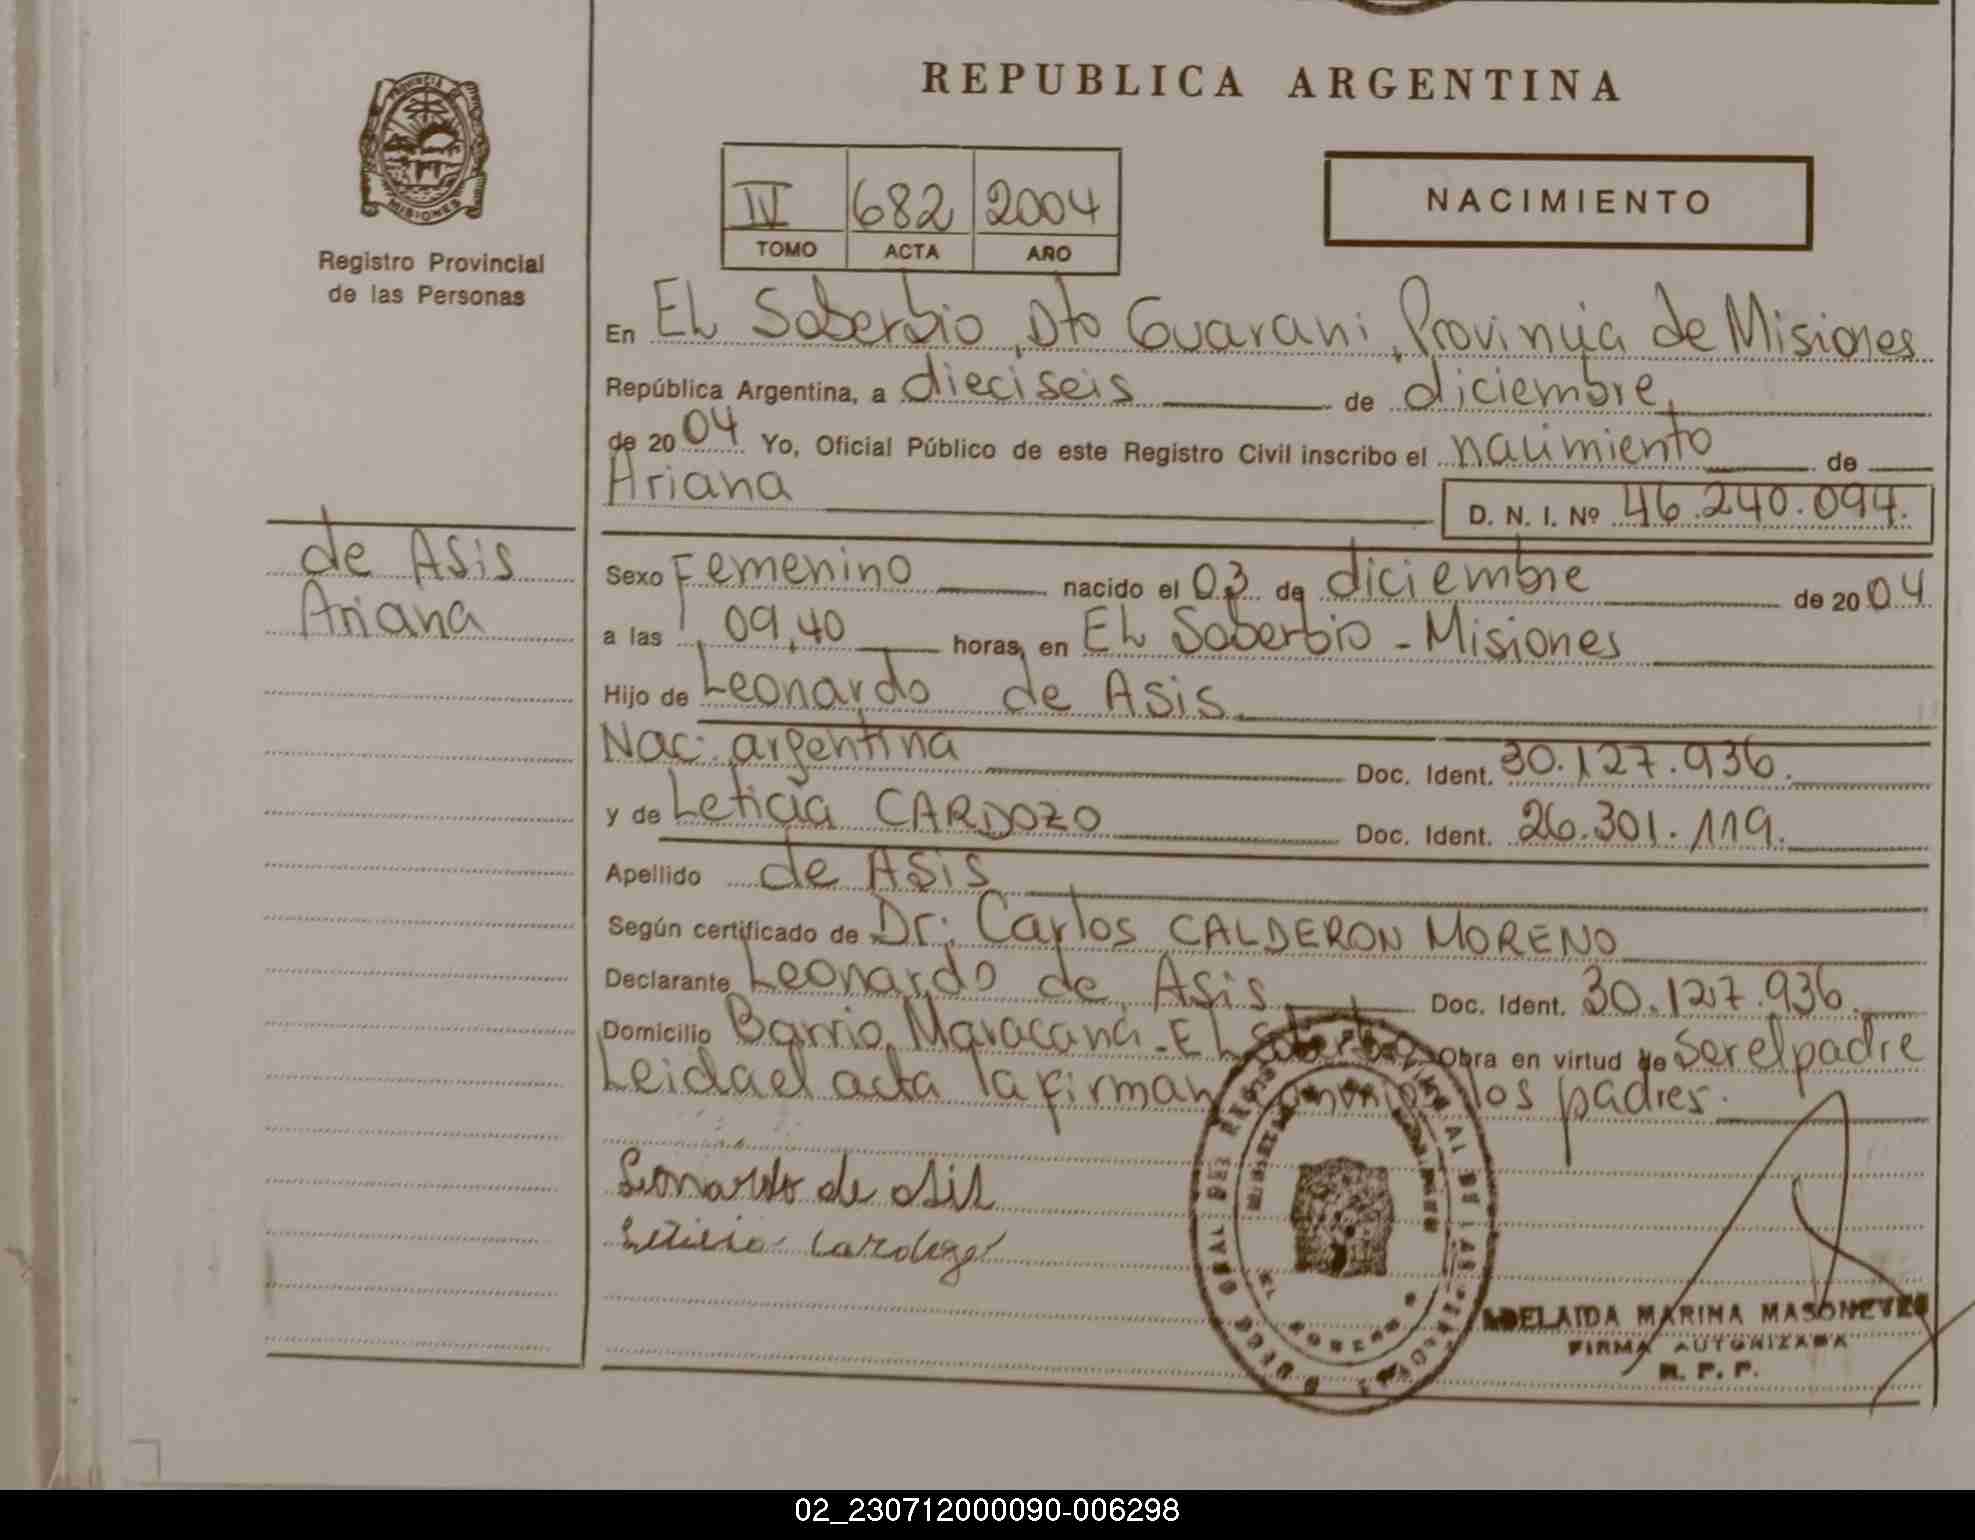 REPUBLICA ARGENTINA
PROVINCIA DE
MISIONES
Registro Provincial
de las Personas
IV 682 2004
TOMO ACTA AÑO
NACIMIENTO
En EL Soberbio, Dto Guarani, Provinyia de Misiones
República Argentina, a dieciseis de diciembre,
de 2004 Yo, Oficial Público de este Registro Civil inscribo el nacimiento de
Ariana
D. N. I. Nº 46.240.094.
de Asis
Ariana
Sexo Femenino nacido el 03 de diciembre de 2004
a las 09,40 horas, en EL Soberbio - Misiones
Hijo de Leonardo de Asis
Nac: argentina Doc. Ident. 30.127.936.
y de Leticia CARDOZO Doc. Ident. 26.301.119.
Apellido de Asis
Según certificado de Dr: Carlos CALDERON MORENO
Declarante Leonardo de Asis Doc. Ident. 30.127.936.
Domicilio Barrio Maracana - EL Soberbio Obra en virtud de ser el padre
Leida el acta la firman conmigo los padres.
Leonardo de asis
Leticia Cardozo
ADELAIDA MARINA MASONEVES
FIRMA AUTORIZADA
R. P. P.
02_230712000090-006298